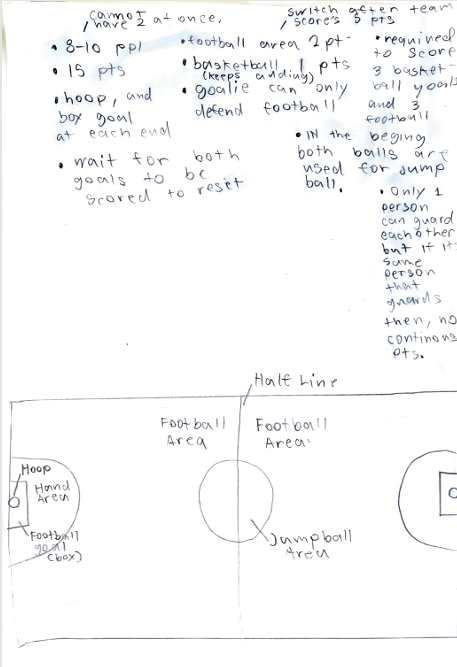 cannot have 2 at once,
switch after team score's 5 pts
• 8-10 ppl
• 15 pts
• hoop, and
box goal
at each end
• wait for both
goals to be
scored to reset
• football area 2 pt
• basketball 1 pts
(keeps adding)
• goalie can only
defend football
• required
to score
3 basket-
ball goals
and 3
football
• IN the beging
both balls are
used for jump
ball.
• Only 1
person
can guard
each other
but if it
same
person
that
guards
then, no
continous
pts.
Half Line
Football
Area
Football
Area
Hoop
Hand
Area
Football
goal
(box)
Jumpball
Area